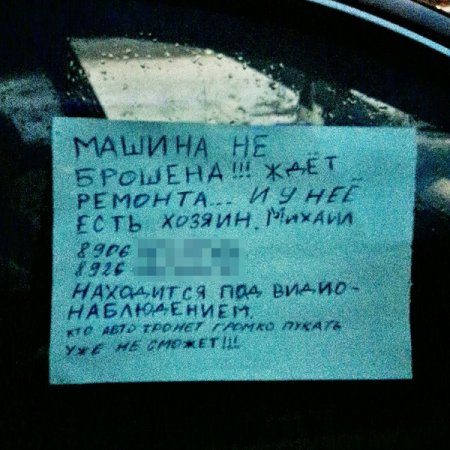 МАШИНА НЕ
БРОШЕНА!!! ЖДЁТ
РЕМОНТА... И У НЕЁ
ЕСТЬ ХОЗЯИН. МИХАИЛ
8906
8926
НАХОДИТСЯ ПОД ВИДИО-
НАБЛЮДЕНИЕМ.
КТО АВТО ТРОНЕТ ГРОМКО ПУКАТЬ
УЖЕ НЕ СМОЖЕТ!!!